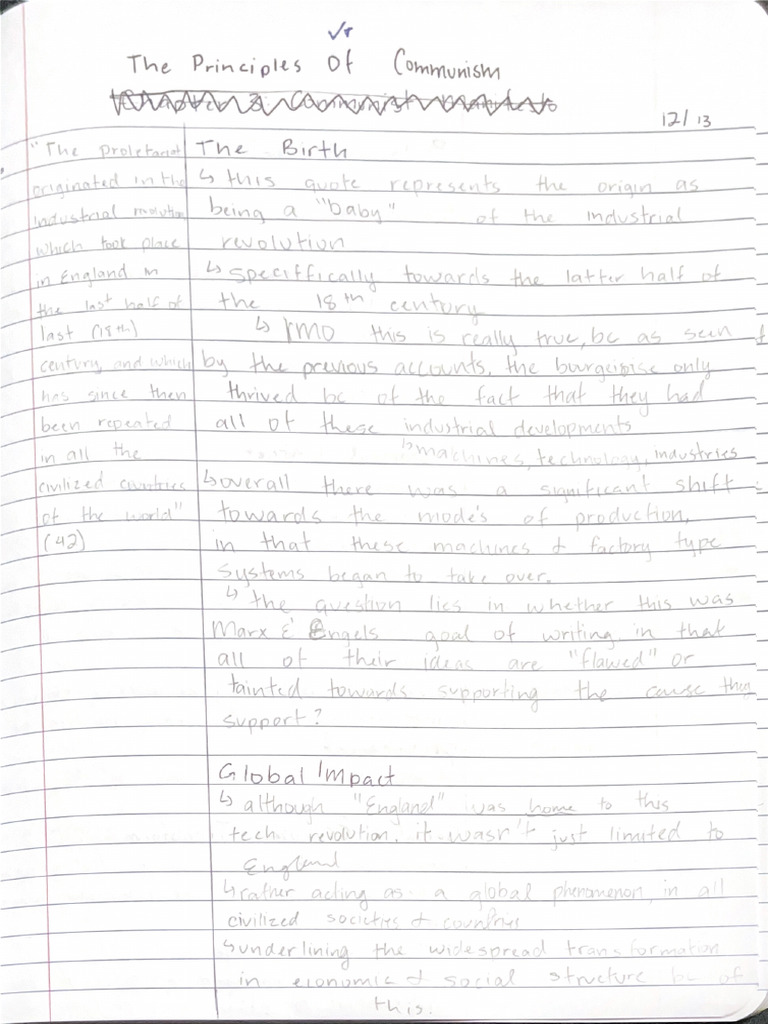 The Principles Of Communism
12/13
"The proletariat
originated in the
industrial revolution
which took place
in England in
the last half of
last (18th)
century, and which
has since then
been repeated
in all the
civilized countries
of the world"
(42)
The Birth
↳ this quote represents the origin as
being a "baby" of the industrial
revolution
↳ speciffically towards the latter half of
the 18th century
↳ IMO this is really true, bc as seen
by the previous accounts, the bourgeipise only
thrived bc of the fact that they had
all of these industrial developments
↳ machines, technology, industries
↳ overall there was a significant shift
towards the mode's of production,
in that these machines & factory type
systems began to take over.
↳ the question lies in whether this was
Marx & Engels goal of writing, in that
all of their ideas are "flawed" or
tainted towards supporting the cause they
support?
Global Impact
↳ although "England" was home to this
tech revolution, it wasn't just limited to
England
↳ rather acting as a global phenomenon, in all
civilized societies & countries
↳ underlining the widespread transformation
in economic & social structure bc of
this.